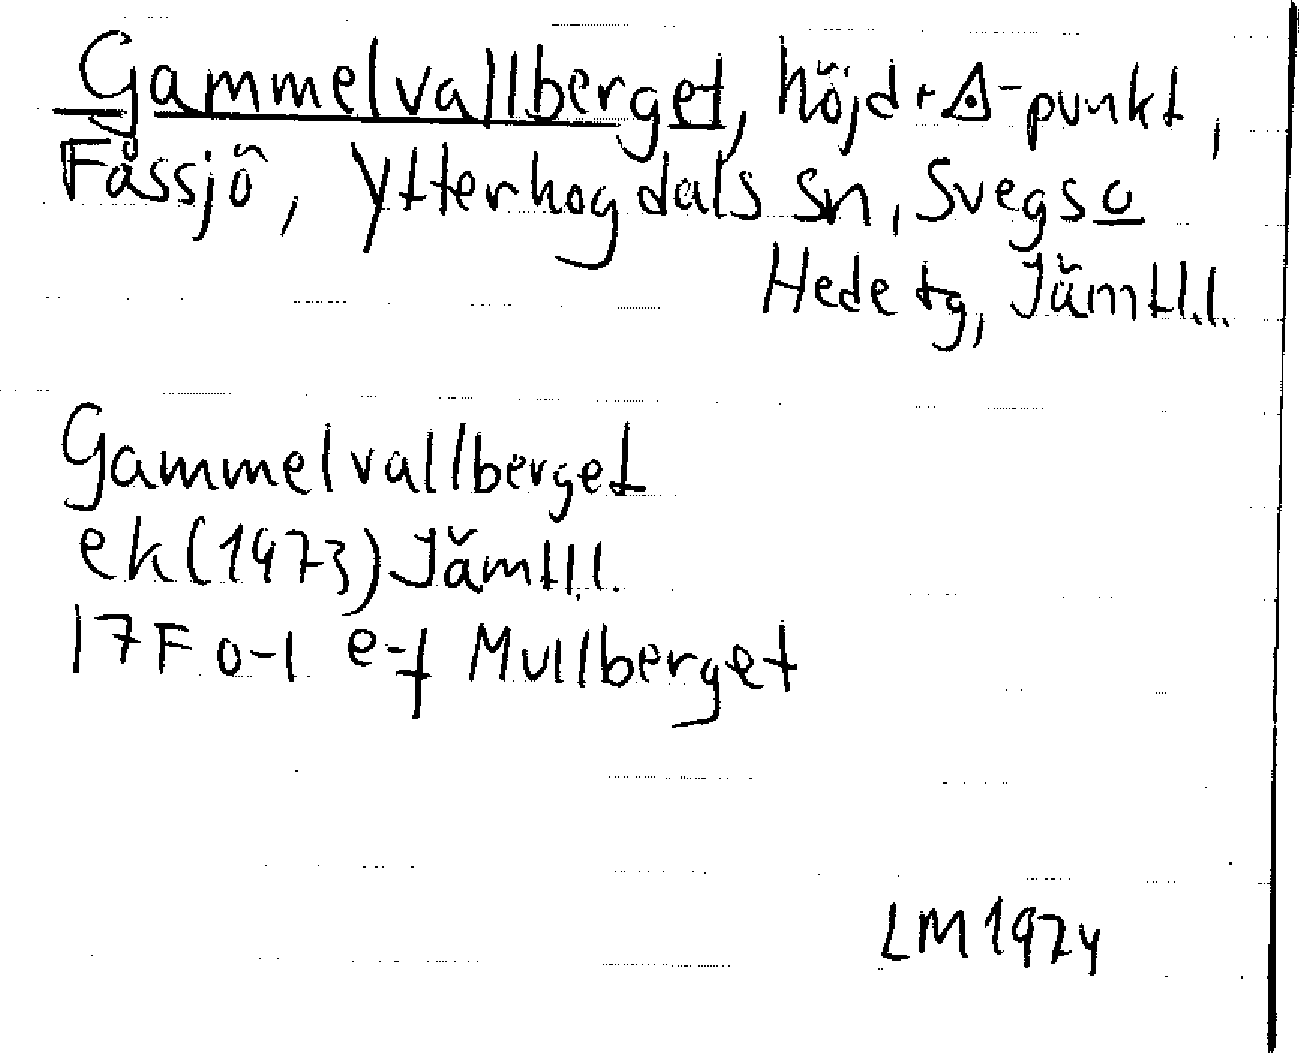 Gammelvallberget, höjd + △-punkt,
Fåssjö, Ytterhogdals sn, Svegs o
Hede tg, Jämtl.l.
Gammelvallberget
ek (1973) Jämtl.l.
17F 0-1 e-f Mullberget
LM 1974